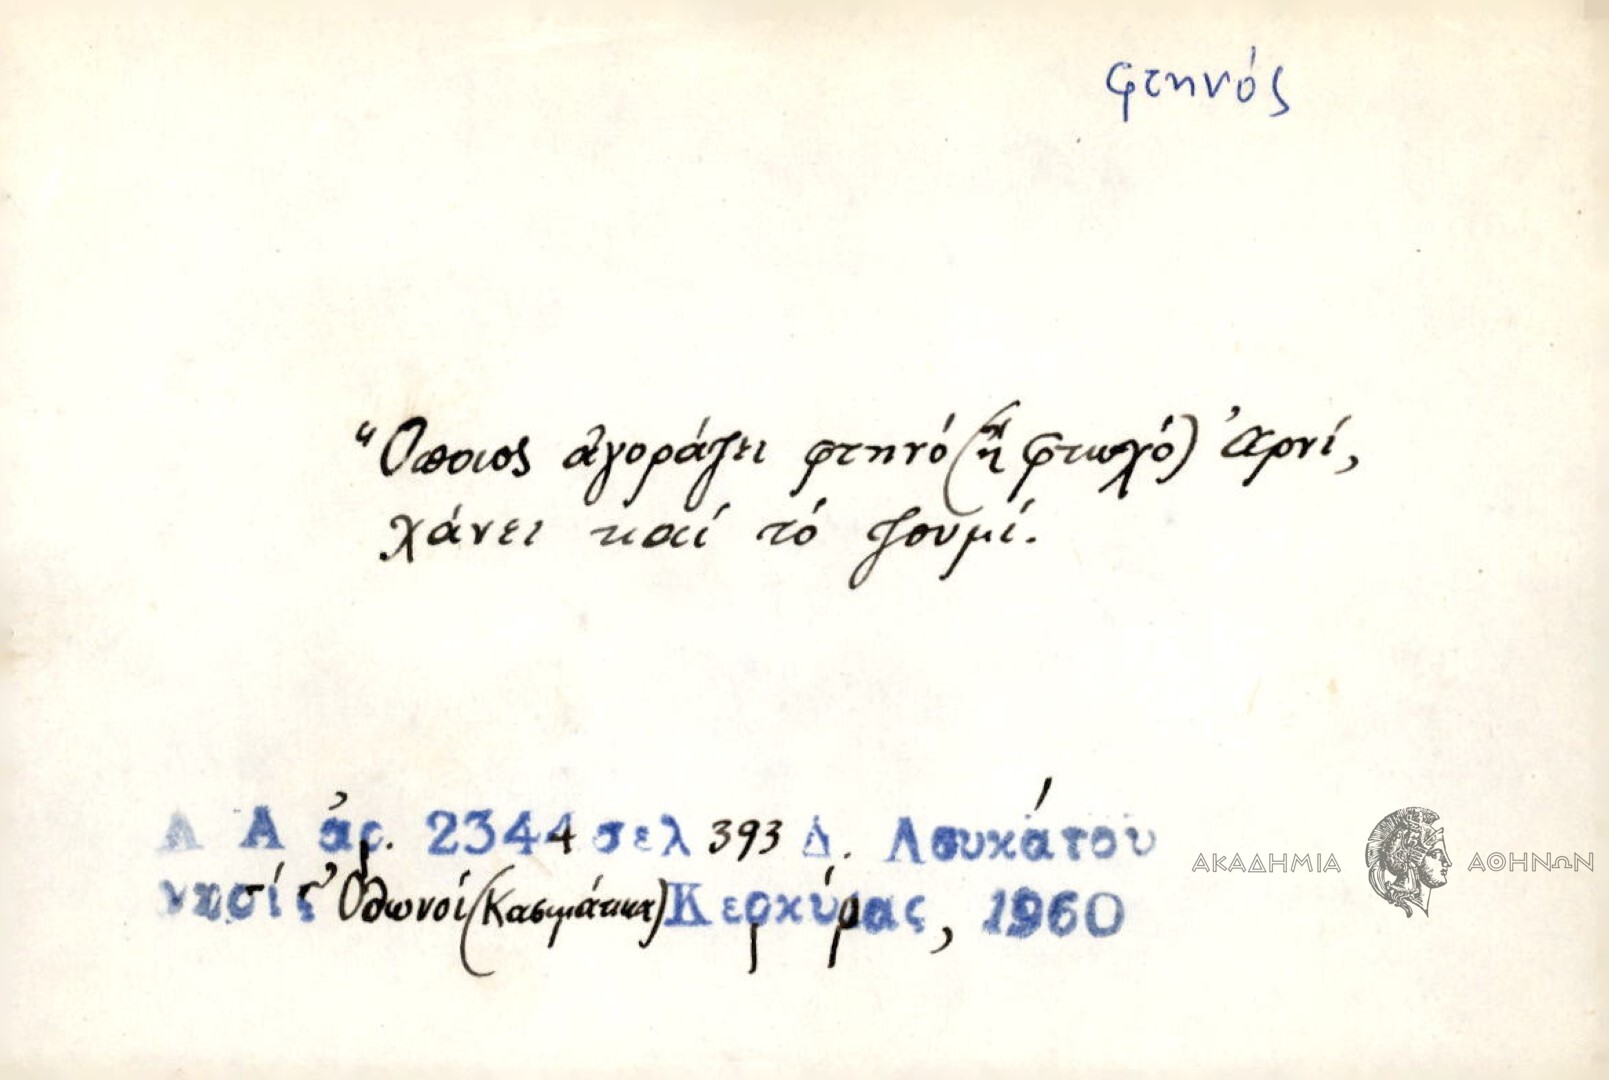 φτηνός
Ὅποιος ἀγοράζει φτηνό (ἤ φτωχό) ἀρνί,
χάνει καί τό ζουμί.
Λ Α ἀρ. 2344 σελ 393 Δ. Λουκάτου
νησίς Ὀθωνοί (Κασιμάτικα) Κερκύρας, 1960
ΑΚΑΔΗΜΙΑ ΑΘΗΝΩΝ